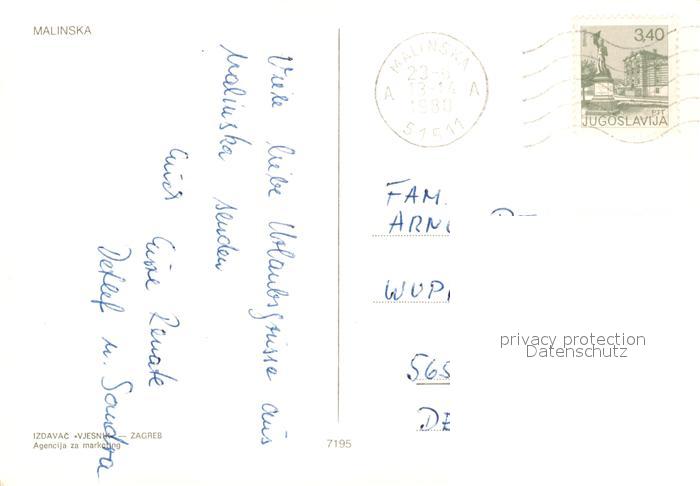 MALINSKA
Viele liebe Urlaubsgrüsse aus
Malinska senden
Euch Eure Renate
Detlef u. Sandra
IZDAVAČ «VJESNIK» — ZAGREB
Agencija za marketing
7195
MALINSKA
A 23-6 A
13-14
1980
51511
3,40
PTT
JUGOSLAVIJA
FAM.
ARN
WUP
565
DE
privacy protection
Datenschutz